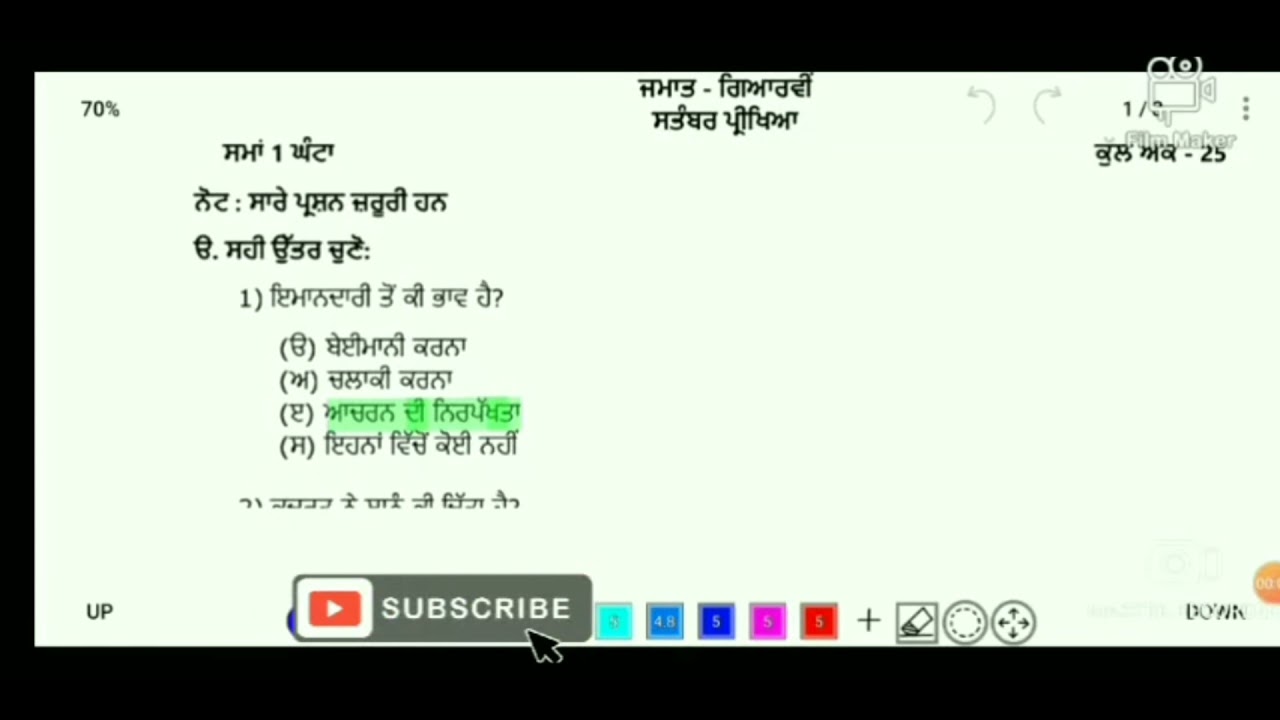 ਜਮਾਤ - ਗਿਆਰਵੀਂ
70%
ਸਤੰਬਰ ਪ੍ਰੀਖਿਆ
1 /
Film Maker
ਸਮਾਂ 1 ਘੰਟਾ
ਕੁੱਲ ਅੰਕ - 25
ਨੋਟ : ਸਾਰੇ ਪ੍ਰਸ਼ਨ ਜ਼ਰੂਰੀ ਹਨ
ੳ. ਸਹੀ ਉੱਤਰ ਚੁਣੋ:
1) ਇਮਾਨਦਾਰੀ ਤੋਂ ਕੀ ਭਾਵ ਹੈ?
(ੳ) ਬੇਈਮਾਨੀ ਕਰਨਾ
(ਅ) ਚਲਾਕੀ ਕਰਨਾ
(ੲ) ਆਚਰਨ ਦੀ ਨਿਰਪੱਖਤਾ
(ਸ) ਇਹਨਾਂ ਵਿੱਚੋਂ ਕੋਈ ਨਹੀਂ
UP
SUBSCRIBE
5 4.8 5 5 5
DOWN